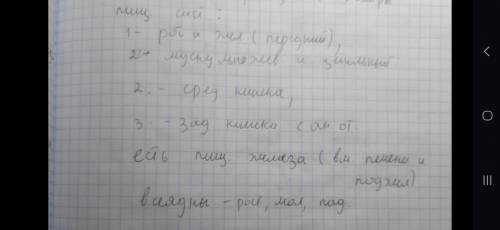 пищ сист:
1- рот и жел (передний),
2- мускул множев и цельный
2. - сред кишка,
3. - зад кишка с ан от.
есть пищ. железа (вм печени и
поджел)
всеядны - рост, мол, пад.